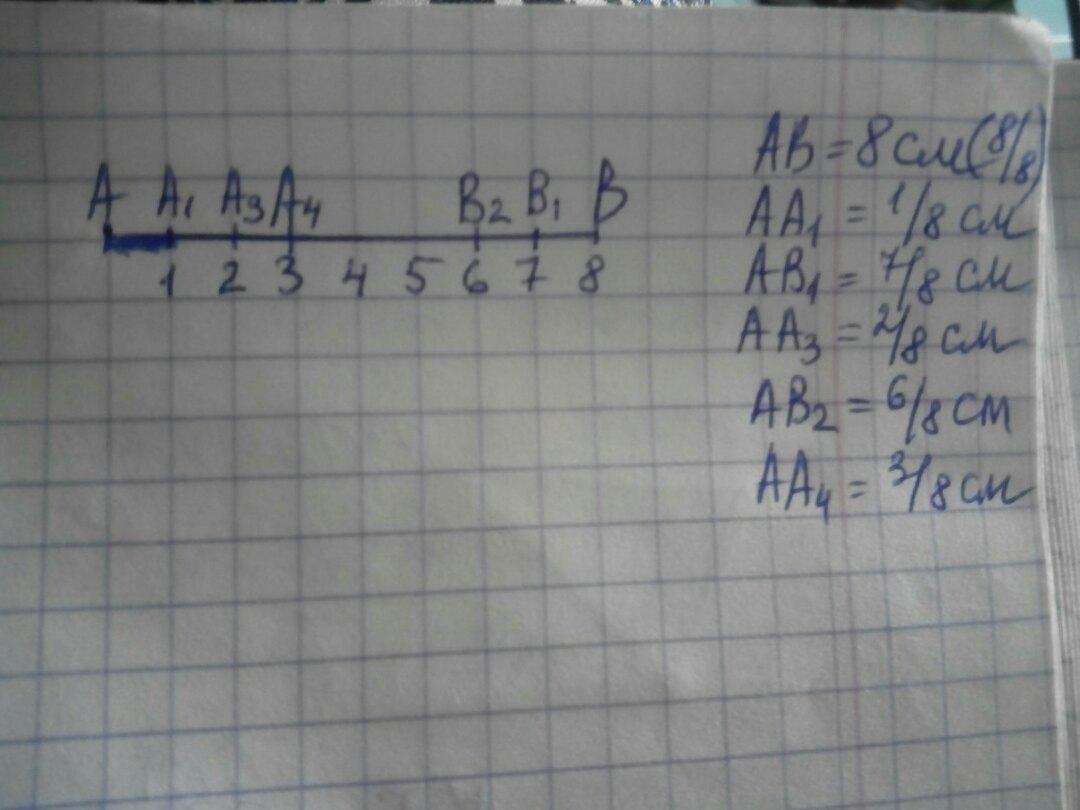 A A₁ A₃ A₄ B₂ B₁ B
1 2 3 4 5 6 7 8
AB = 8 см (8/8)
AA₁ = 1/8 см
AB₁ = 7/8 см
AA₃ = 2/8 см
AB₂ = 6/8 см
AA₄ = 3/8 см